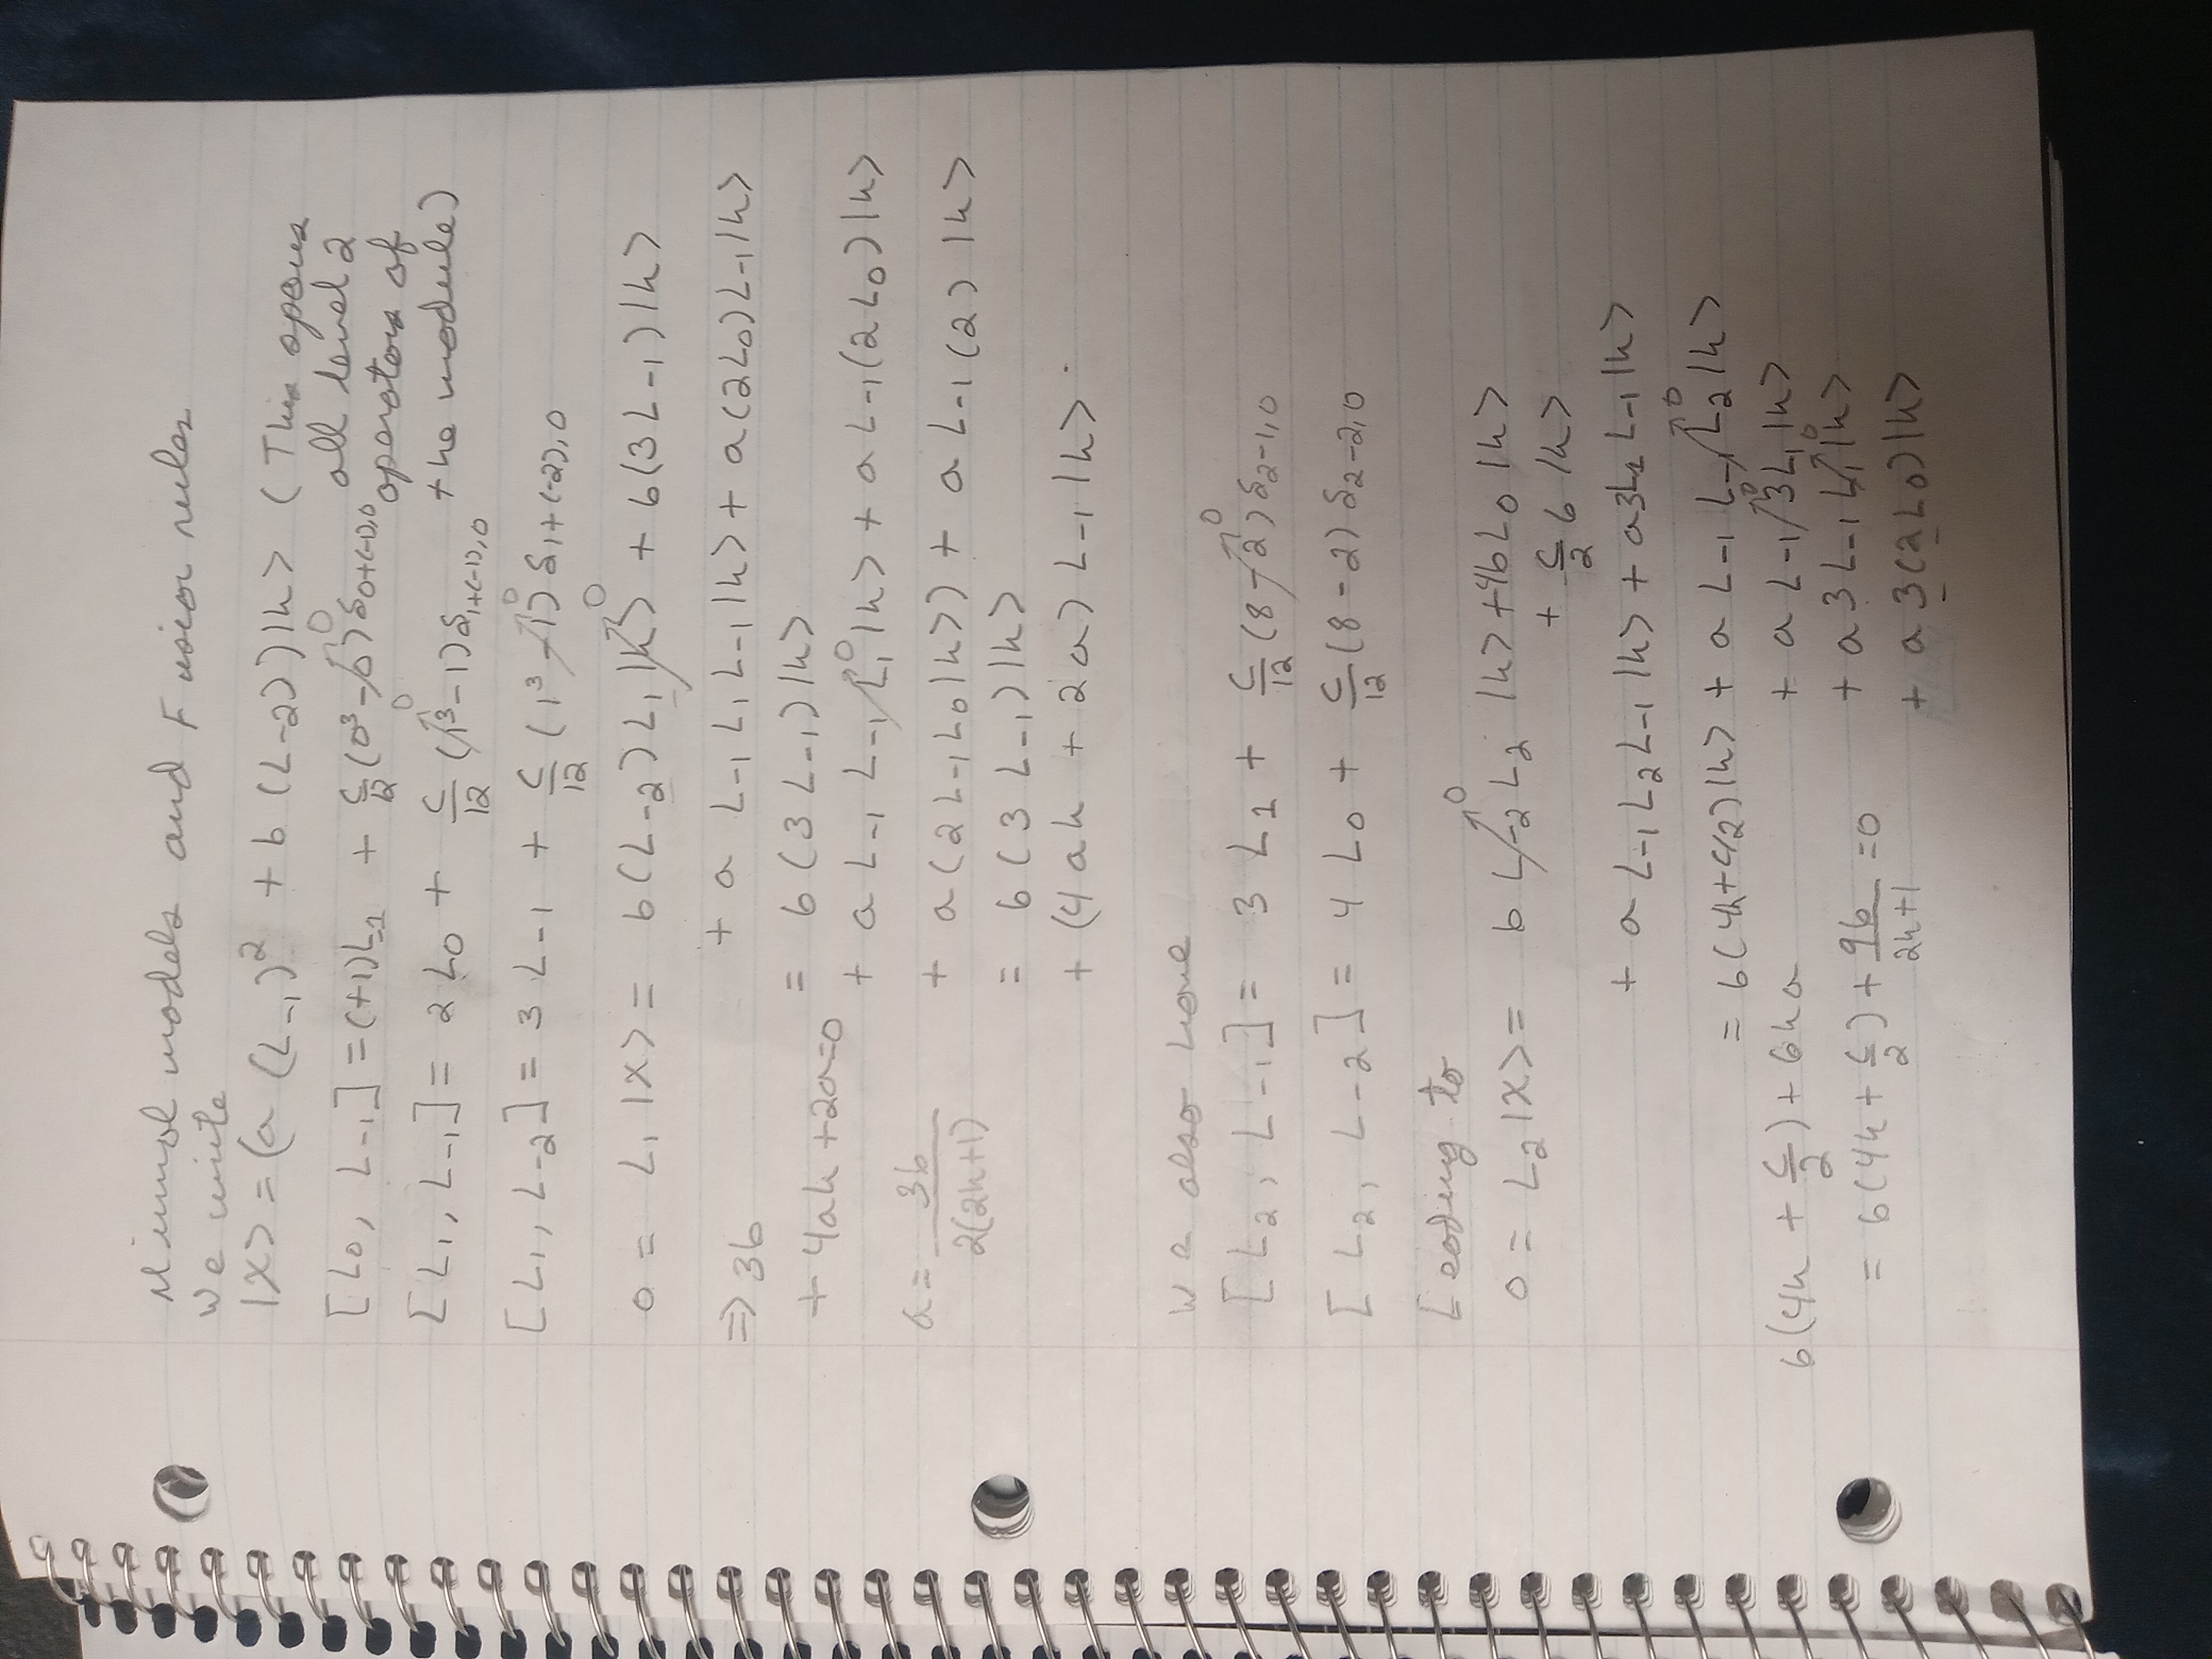 Minimal models and Fusion rules
We write
|x> = (a (L-1)² + b (L-2))|h> (This spans
all level 2
operators of
the module)
[L0, L-1] = (+1)L-1 + c/12 (0³-0)δ0+(-1),0
[L1, L-1] = 2L0 + c/12 (1³-1)δ1+(-1),0
[L1, L-2] = 3L-1 + c/12 (1³-1)δ1+(-2),0
0 = L1|x> = b(L-2)L1|h> + b(3L-1)|h>
+ a L-1L1L-1|h> + a(2L0)L-1|h>
=> 3b + 4ah + 2a = 0
= b(3L-1)|h>
+ a L-1L-1L1|h> + aL-1(2L0)|h>
a = 3b / 2(2h+1)
+ a(2L-1L0|h>) + aL-1(2)|h>
= b(3L-1)|h>
+ (4ah + 2a)L-1|h>.
We also have
[L2, L-1] = 3L1 + c/12 (8-2)δ2-1,0
[L2, L-2] = 4L0 + c/12 (8-2)δ2-2,0
Leading to
0 = L2|x> = bL-2L2|h> + 4bL0|h>
+ c/2 b|h>
+ aL-1L2L-1|h> + a3L1L-1|h>
= b(4h+c/2)|h> + aL-1L-1L2|h>
+ aL-1 3L1|h>
+ a3L-1L1|h>
+ a3(2L0)|h>
b(4h + c/2) + 6ha
= b(4h + c/2) + 9b/2h+1 = 0